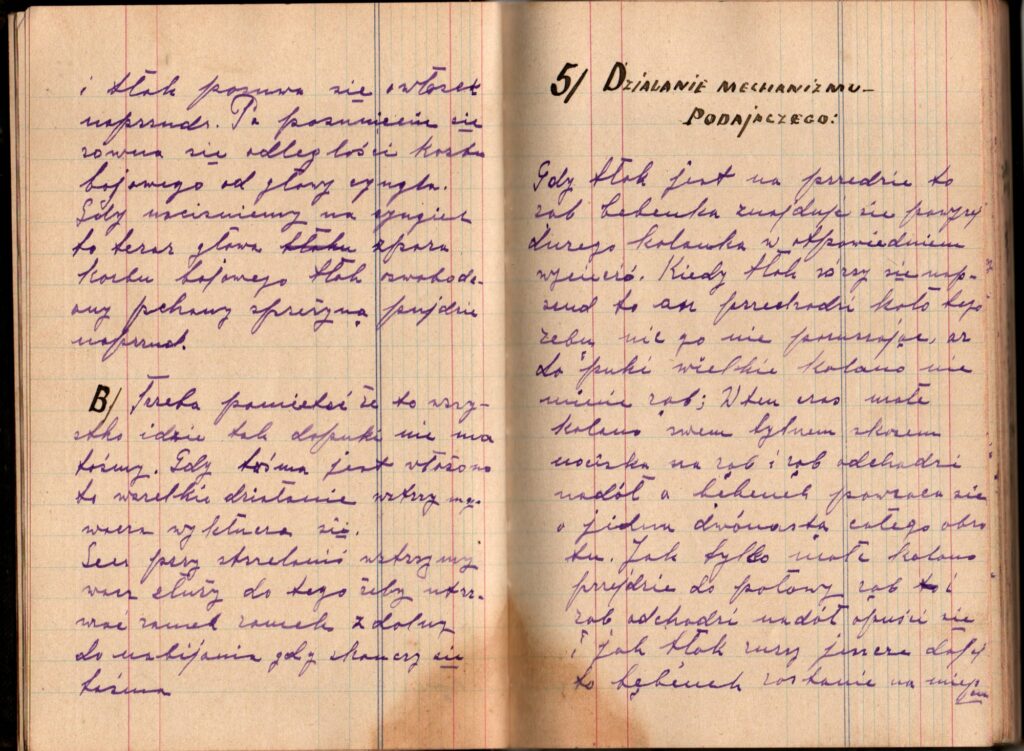 i tłok posuwa się o włosek
naprzudr. Ta posunięcie się
równa się odległości kozbu
bojowego od głowy cyngla.
Gdy naciśniemy na cyngiel
to teraz głowa tłoku z pora
kozbu bojowego tłok oswobodz-
ony pchany sprężyną pujdzie
naprzud.
B/ Trzeba pamietać że to wszy-
stko idzie tak dopuki nie ma
tośmy. Gdy tośma jest włożona
to wszelkie działanie wstrzymy-
wacza wyklucza się.
Lecz przy strzelaniu wstrzymy
wacz służy do tego żeby utrz-
wać zamek zamek zdolny
do nabijania gdy skończy się
tośma
5/ DZIALANIE MECHANIZMU-
PODAJACZEGO:
Gdy tłok jest na przedzie to
zob bębenka znajduje się powyżej
dużego kolanka w otpowiedniem
wycięció. Kiedy tłok rószy się nap-
szud to on przechodzi koło tego
zebu nic go nie poruszając, aż
do puki wielkie kolano nie
minie zob; W ten czas małe
kolano swem tylnem skosem
naciska na zob i zob odchodzi
nadół a bębenek powraca się
o jidna dwónasta całego obro
tu. Jak tylko małe kolano
przejdzie do połowy zob to i
zob odchodzi nadół opuści się
i jak tłok ruszy jeszcze dalej
to bębenek zostanie na miejscu